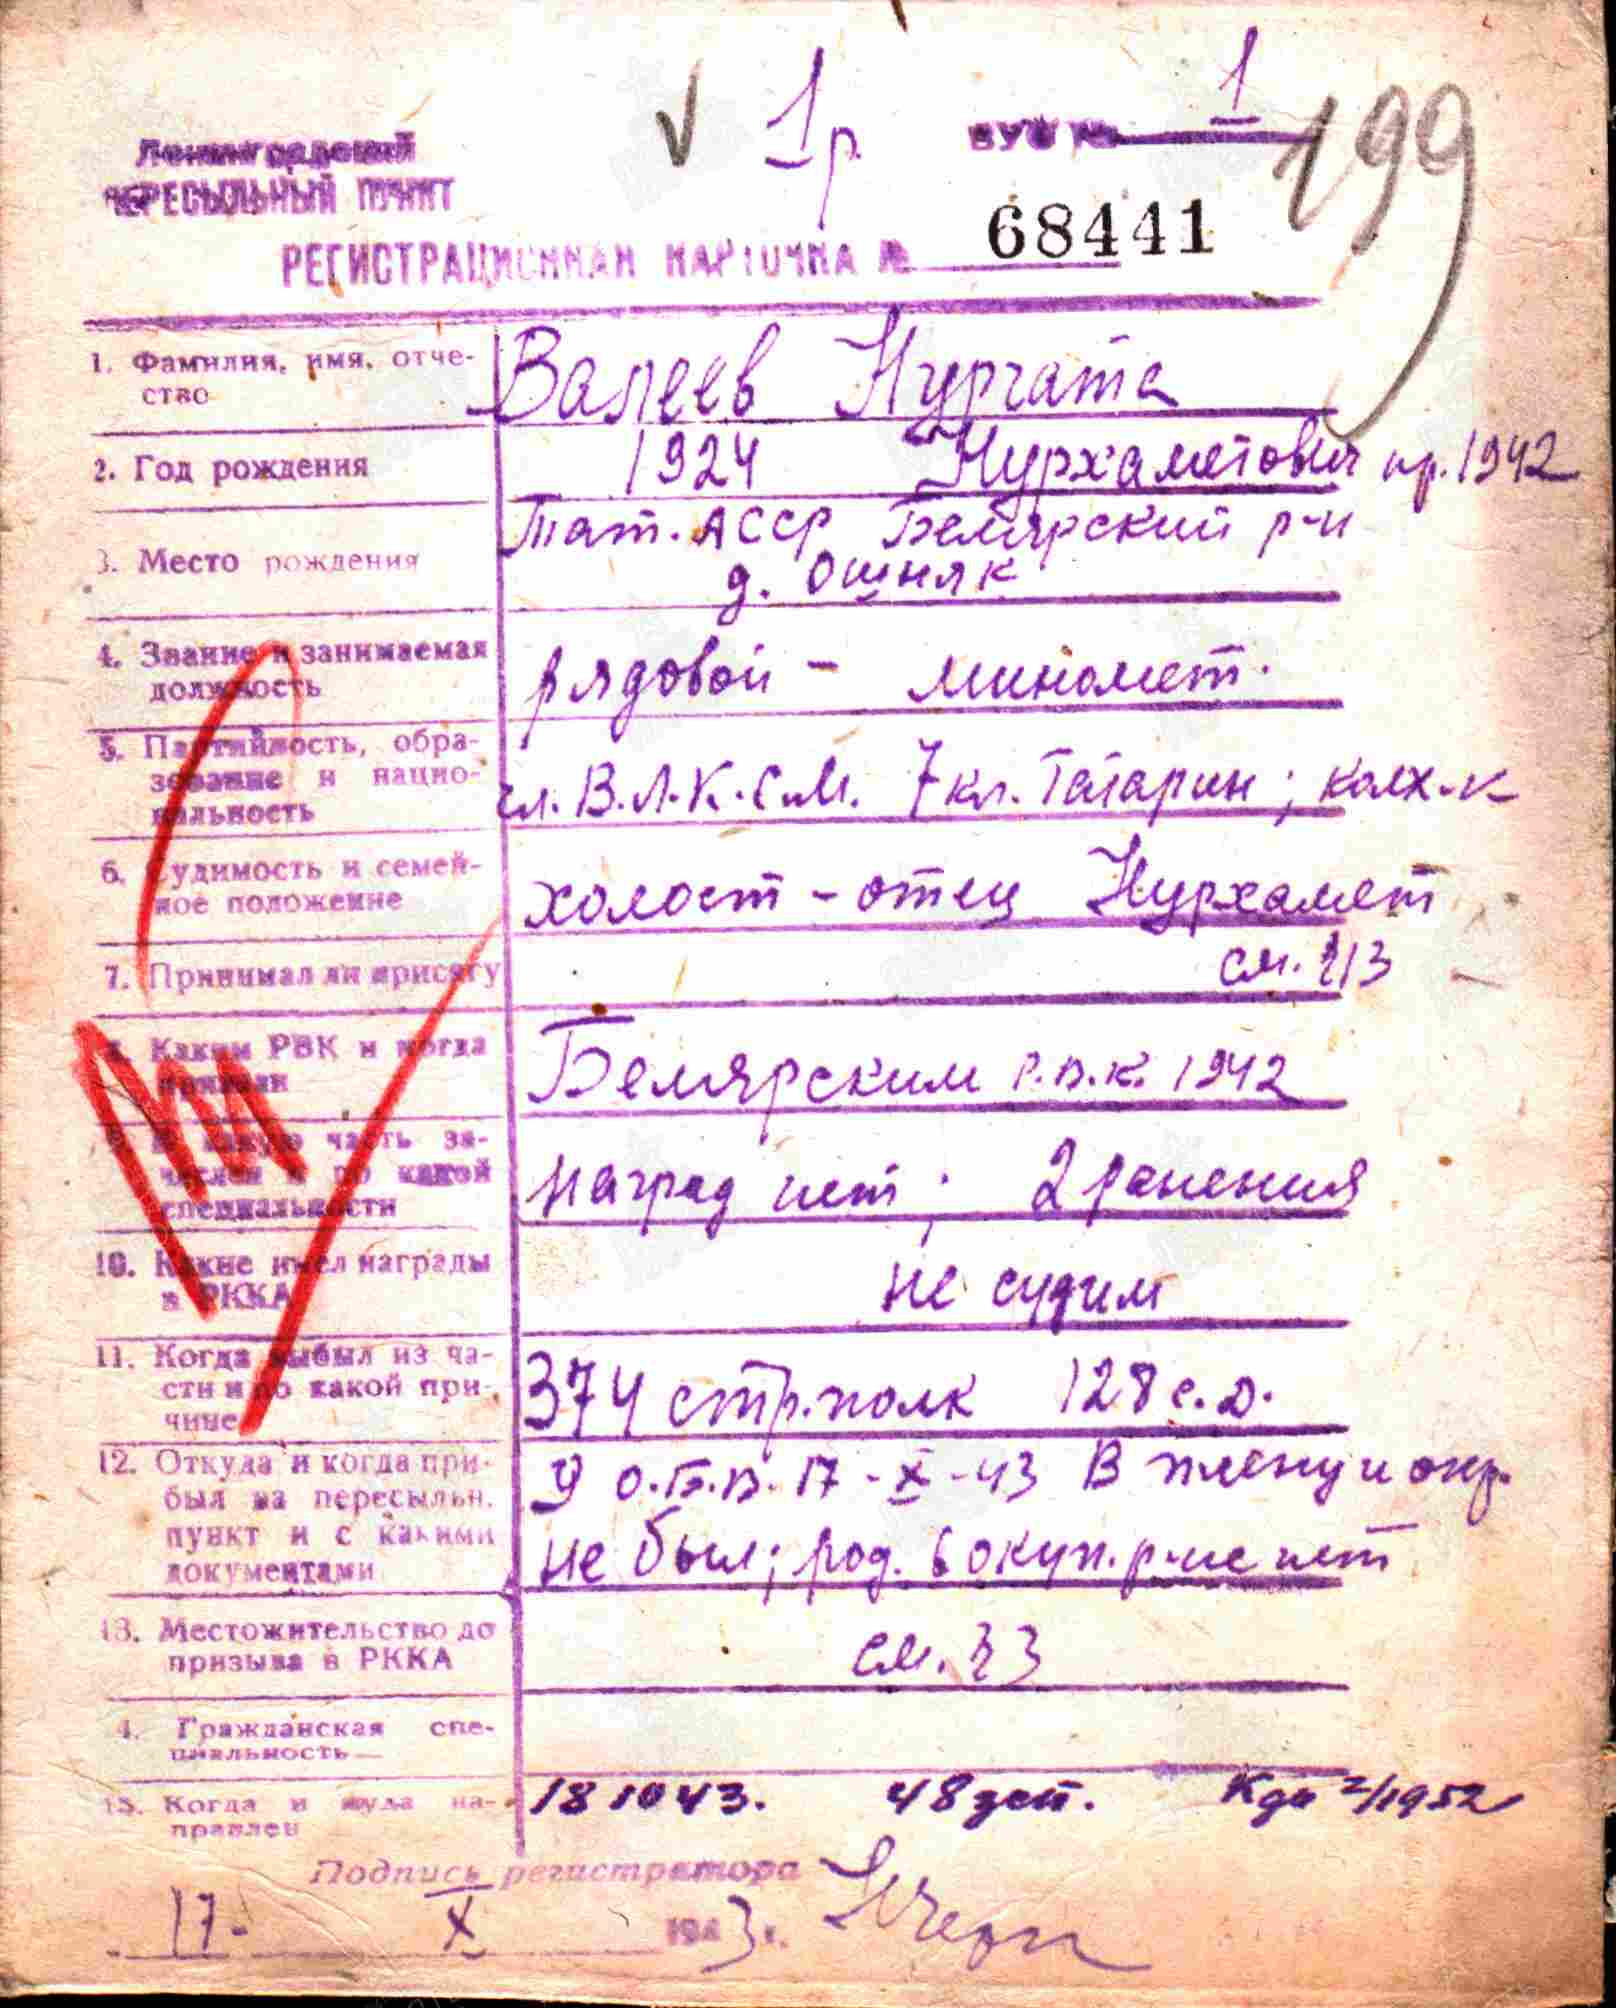 1р. ВУС № 1
199
Ленинградский
ПЕРЕСЫЛЬНЫЙ ПУНКТ
РЕГИСТРАЦИОННАЯ КАРТОЧКА № 68441
1. Фамилия, имя, отче-
ство
Валеев Нургата
2. Год рождения
1924 Нурхаметович пр. 1942
3. Место рождения
Тат. АССР Белярский р-н
д. Ошняк
4. Звание и занимаемая
должность
рядовой - миномет.
5. Партийность, обра-
зование и нацио-
нальность
чл. В.Л.К.С.М. 7 кл. Татарин; колх-к
6. Судимость и семей-
ное положение
холост - отец Нурхамет
7. Принимал ли присягу
см. ч3
8. Каким РВК и когда
призван
Белярским Р.В.К. 1942
9. В какую часть за-
числен и по какой
специальности
наград нет; 2 ранения
10. Какие имел награды
в РККА
не судим
11. Когда выбыл из ча-
сти и по какой при-
чине
374 стр. полк 128 с.д.
12. Откуда и когда при-
был на пересыльн.
пункт и с какими
документами
О.Б.В. 17-X-43 В плену и окр.
не был; род. в окуп. р-не нет
13. Местожительство до
призыва в РККА
см. ч3
14. Гражданская спе-
циальность
15. Когда и куда на-
правлен
18 10 43. 48 зсп. 2/1952
Подпись регистратора
17- X 1943 г.